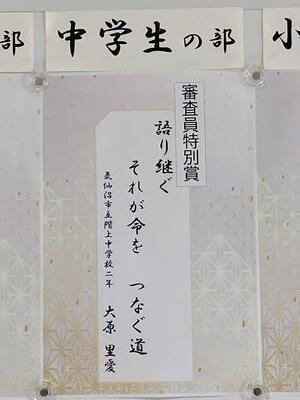 部
中学生の部
小
審査員特別賞
語り継ぐ
それが命を つなぐ道
気仙沼市立階上中学校二年 大原 里愛